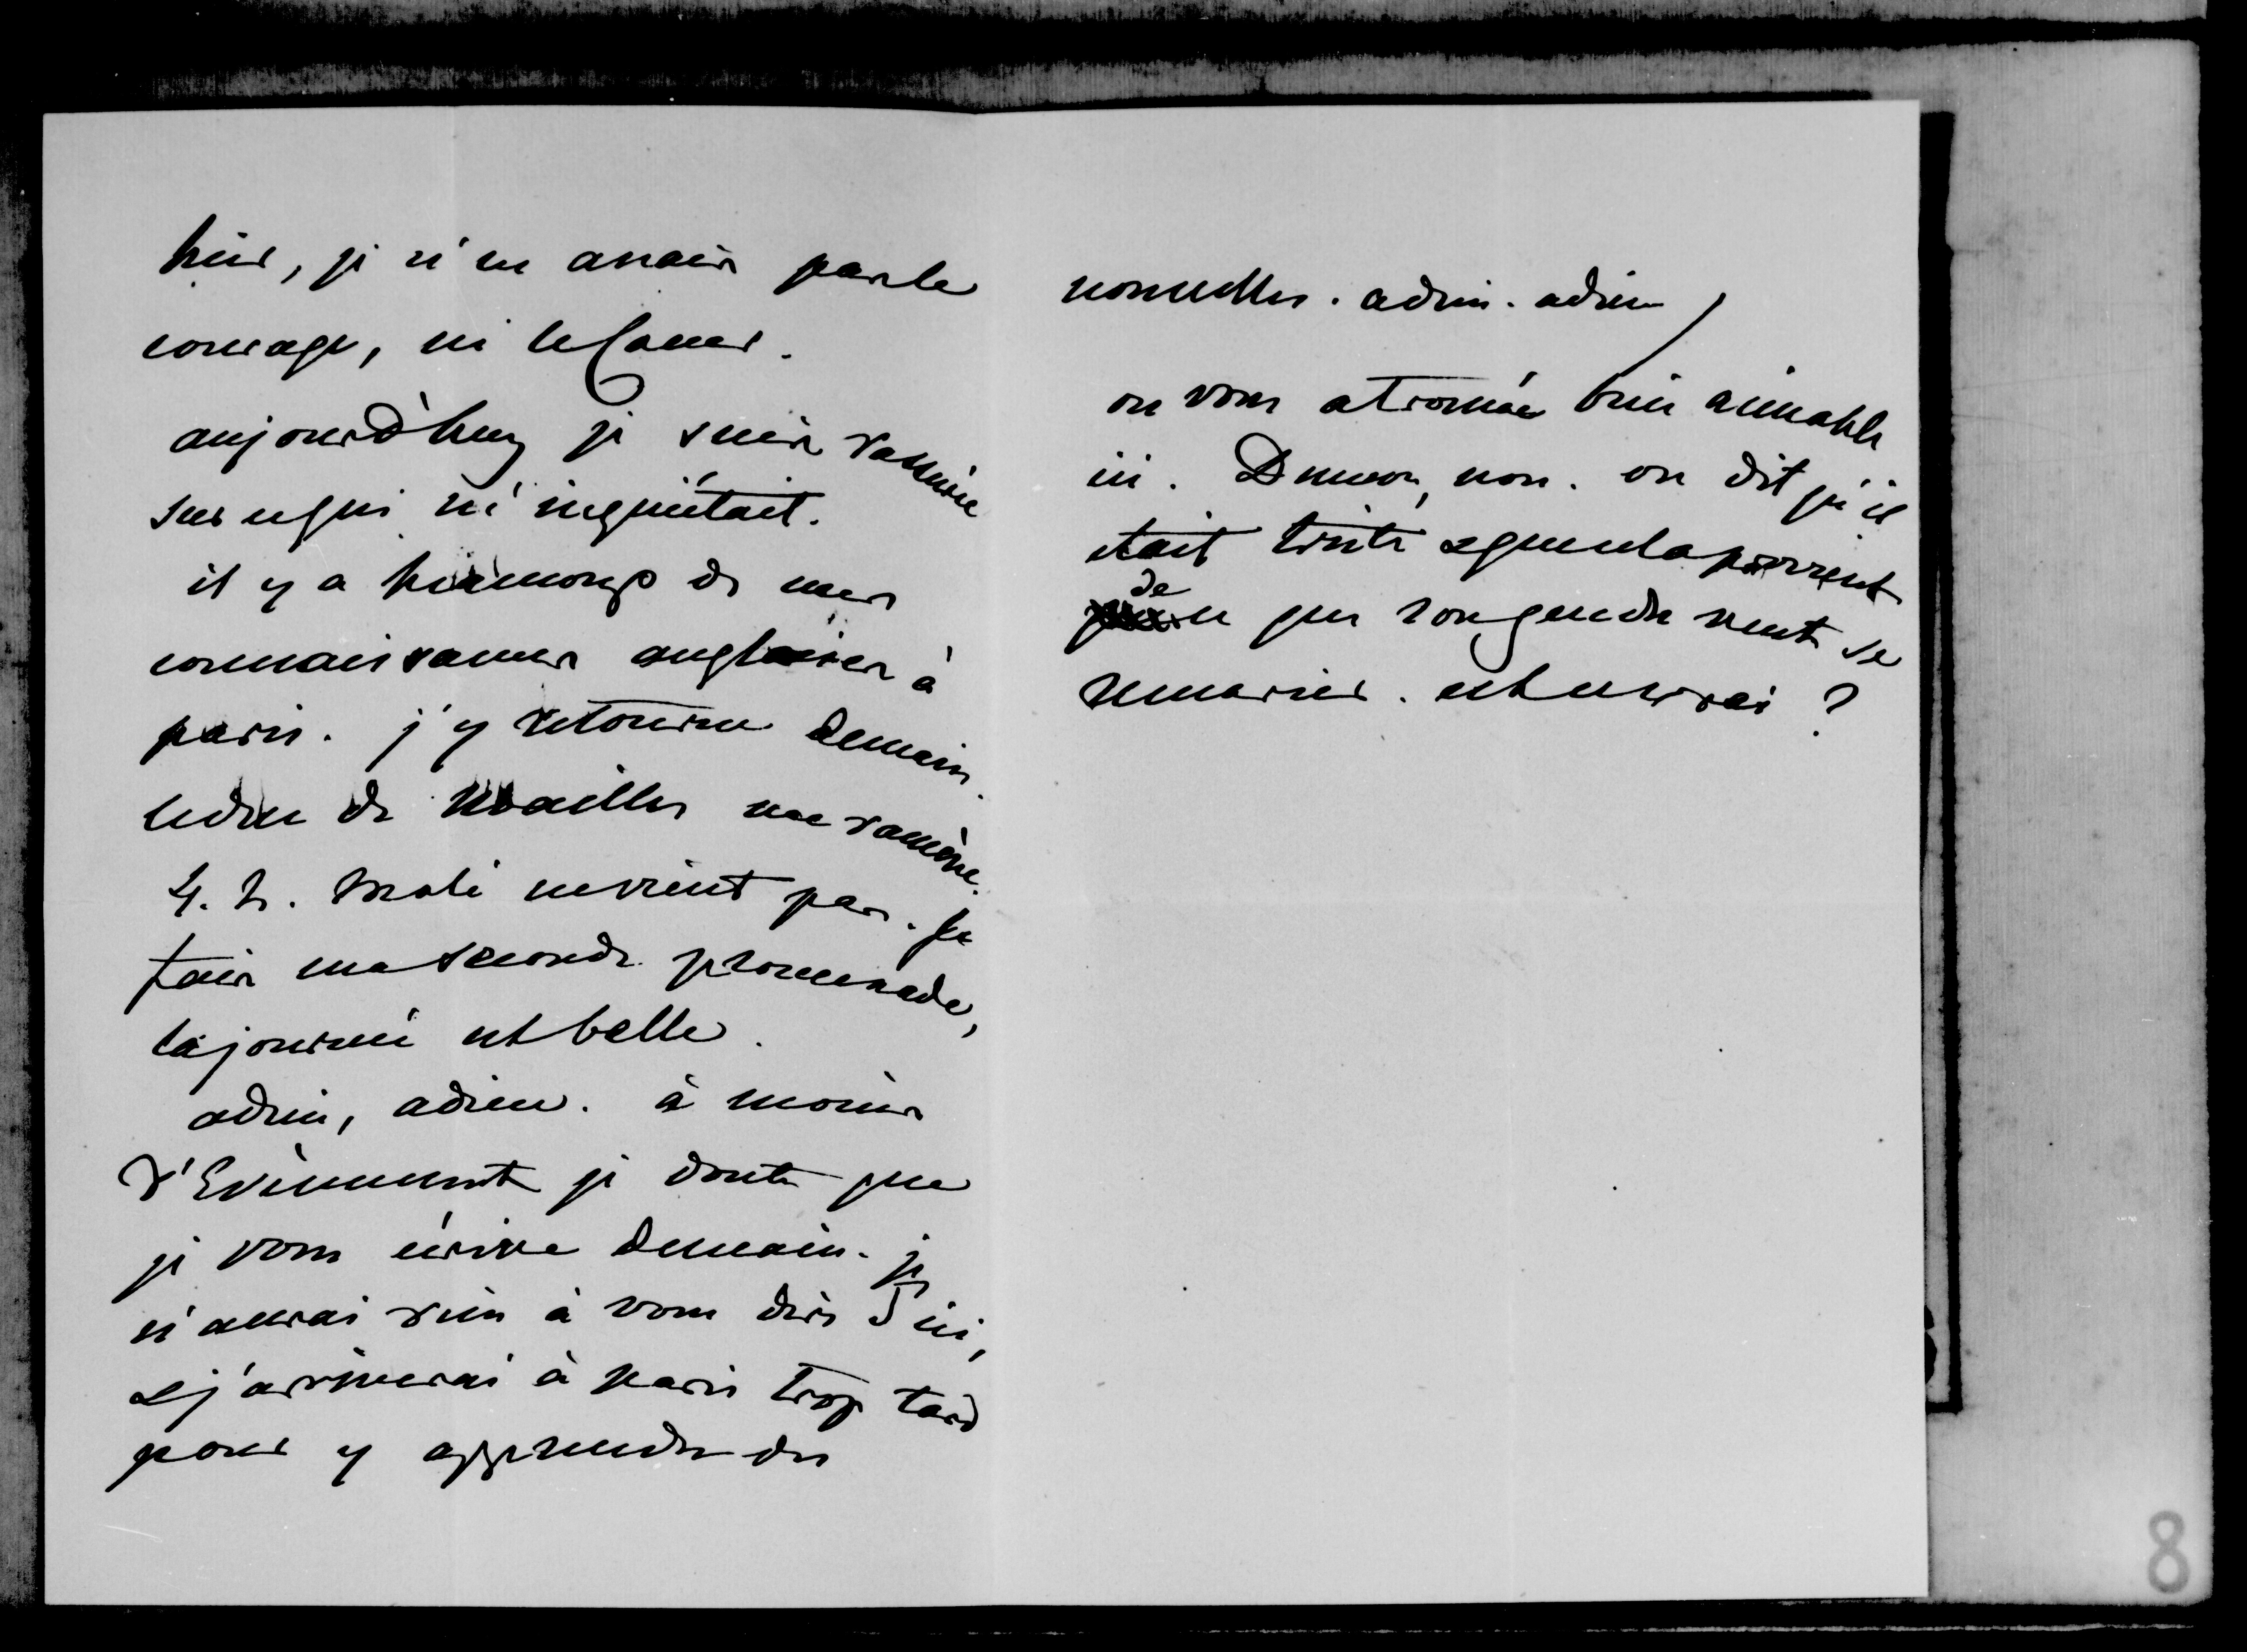 hier, je n'en avais pas le
courage, ni le tems.
aujourd'huy je suis ramenée
sur ce qui m'inquiétait.
il y a beaucoup de mes
connaissances anglaises à
paris. j'y retourne demain.
le duc de Noailles me ramène.
4. h. Molé ne vient pas. je
fais ma seconde promenade,
la journée est belle.
adieu, adieu. à moins
d'Evénement je doute que
je vous écrive demain. je
n'aurai rien à vous dire d'ici,
& j'arriverai à Paris trop tard
pour y apprendre des
nouvelles. adieu. adieu
on vous a trouvé bien aimable
ici. Dumon, non. on dit qu'il
était triste & que cela provient
de
ce que son gendre veut se
remarier. est ce vrai ?
8